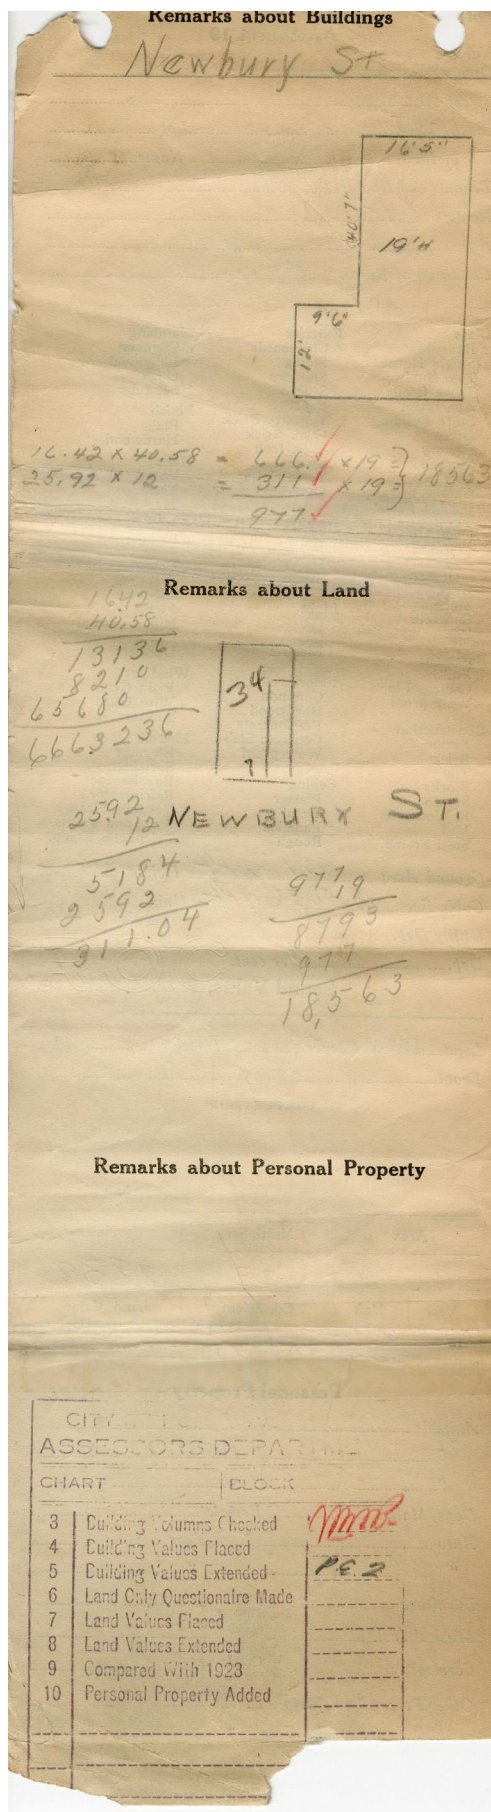 Remarks about Buildings
Newbury St
16'5"
40'7"
19'H
9'6"
12'
16.42 x 40.58 = 666. x 19 = } 18563
25.92 x 12 = 311 x 19 = }
977
Remarks about Land
1642
40.58
13136
8210
65680
6663236
34
7
NEWBURY ST.
25.92
12
5184
2592
311.04
977
19
8793
977
18,563
Remarks about Personal Property
CITY
ASSESSORS DEPARTM
CHART BLOCK
3 Building Volumns Checked
4 Building Values Placed
5 Building Values Extended P.E.2
6 Land Only Questionaire Made
7 Land Values Placed
8 Land Values Extended
9 Compared With 1923
10 Personal Property Added